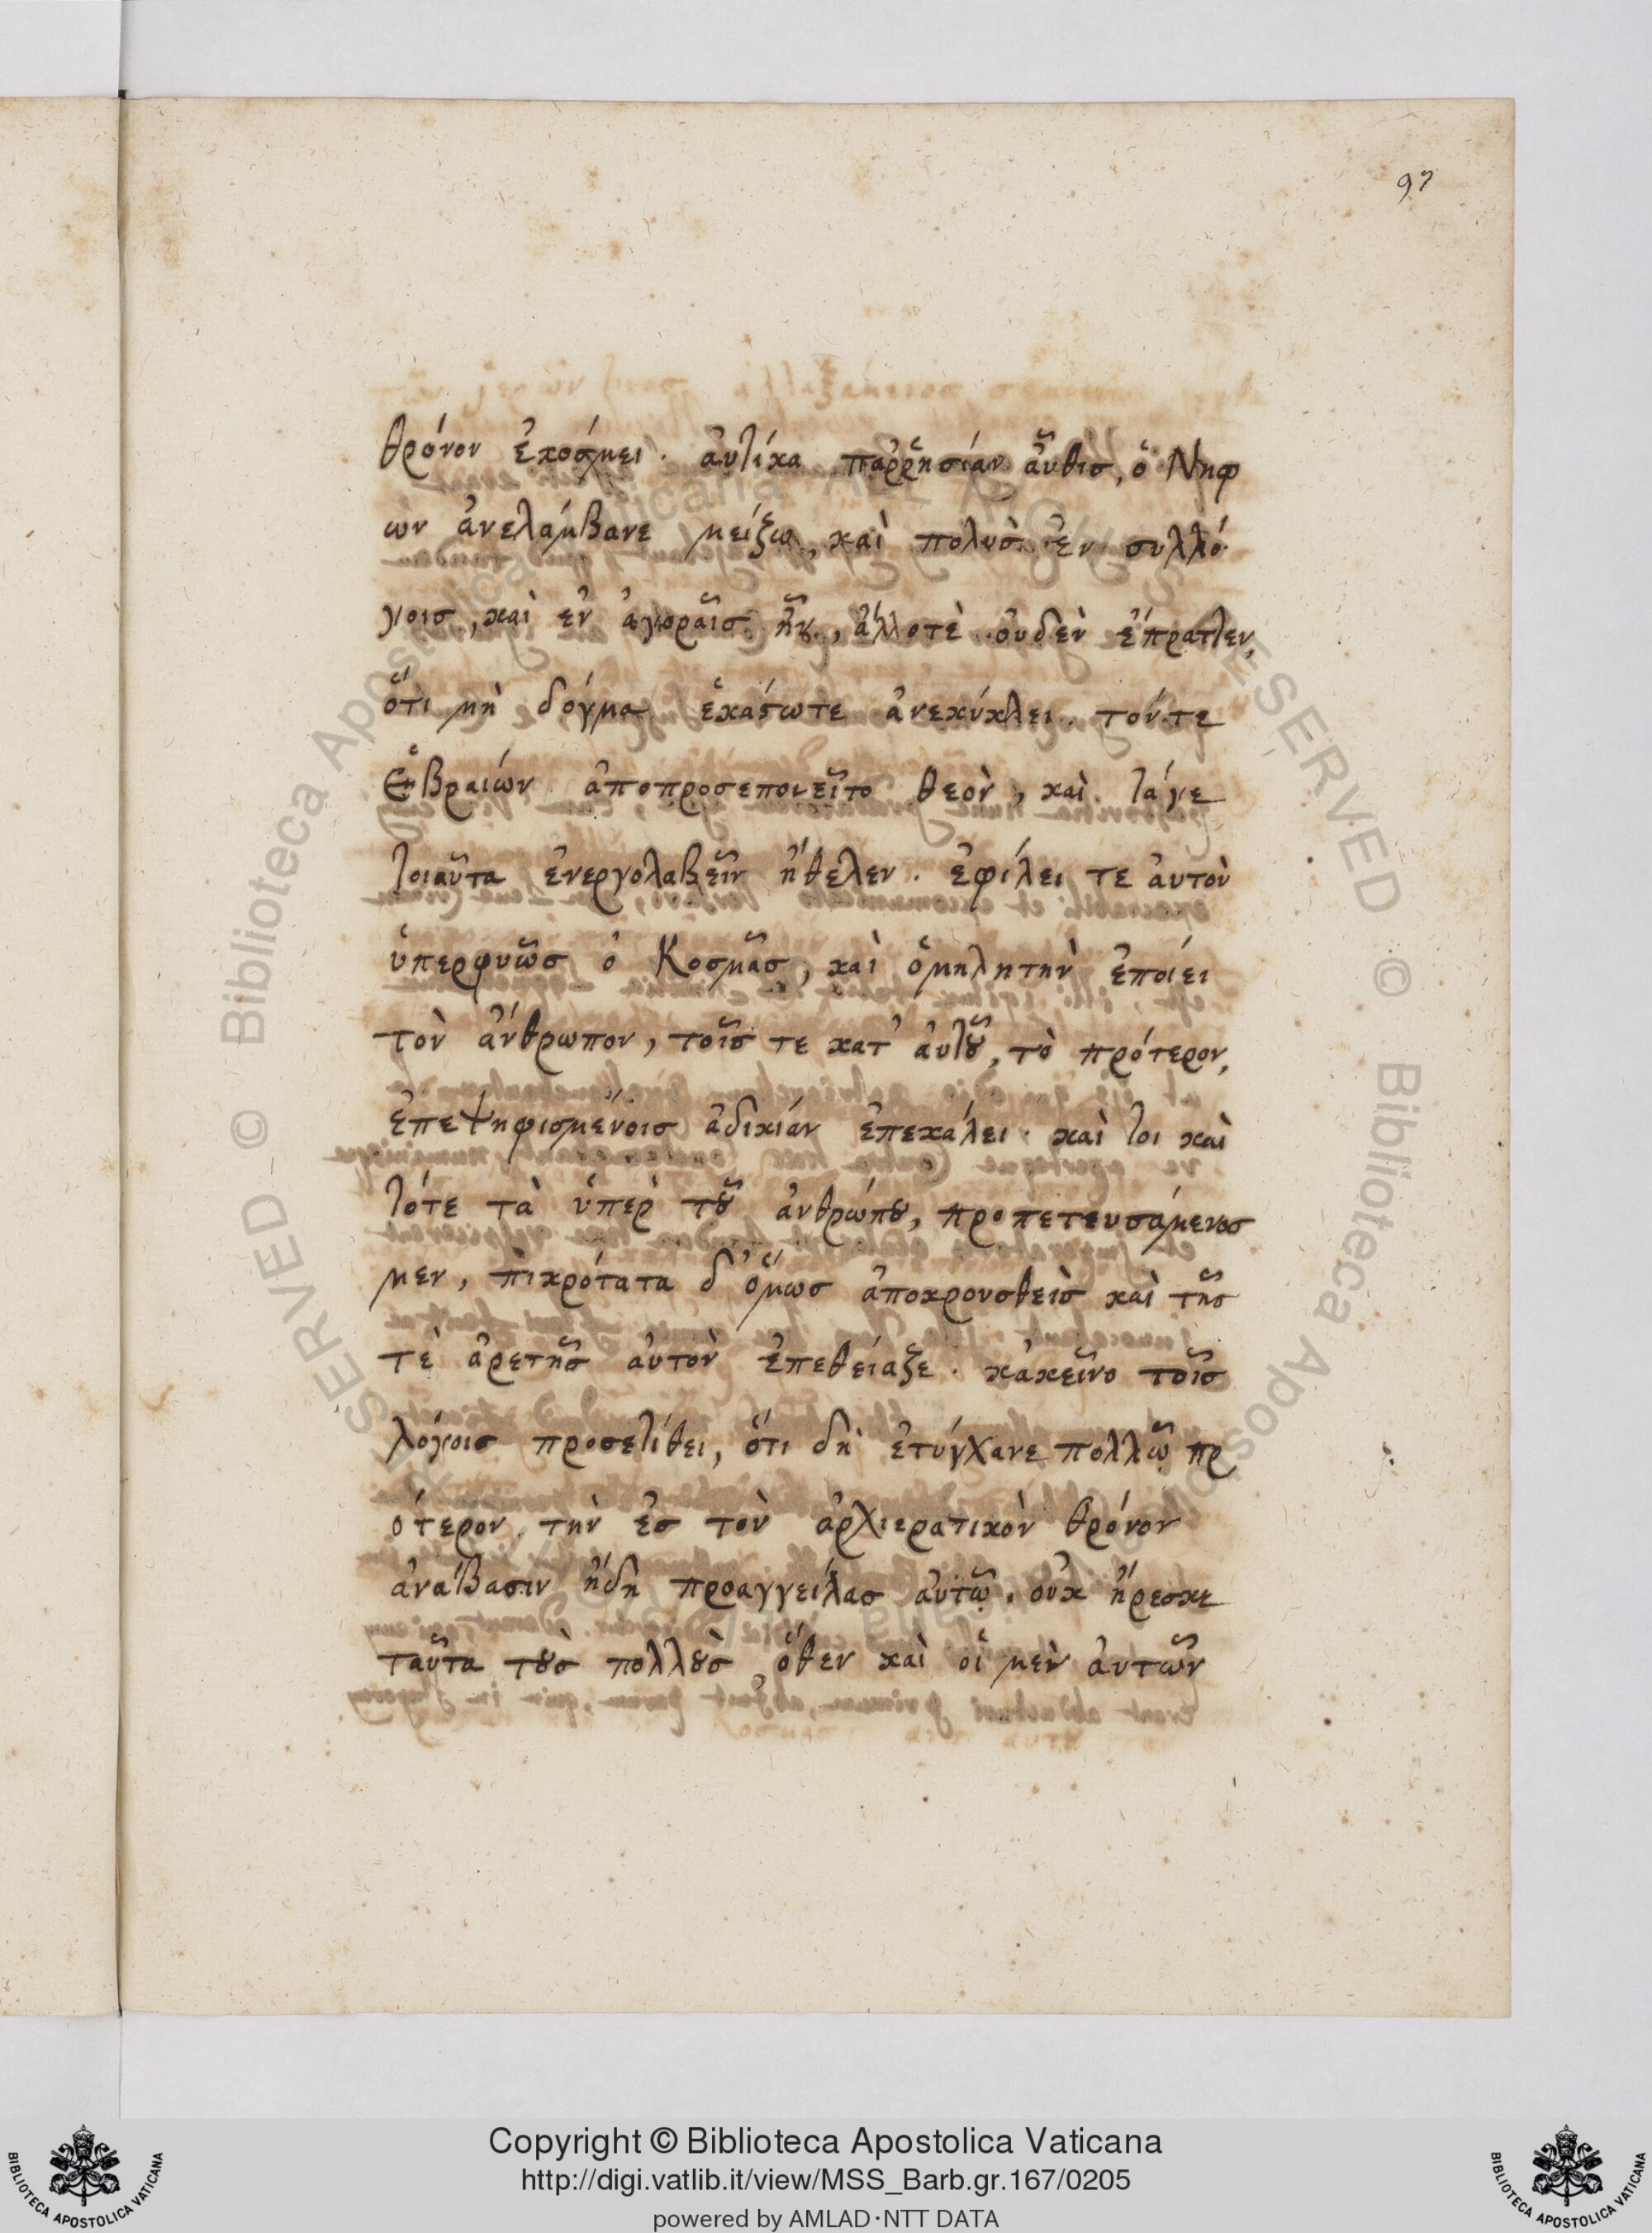 97
θρόνον ἐκόσμει. ἀυτίκα παῤῥησίαν ἆυθισ, ὁ Νηφ
ων ἀνελάμβανε μείζω, καὶ πολυσ̀ ἐν συλλό
γοισ, καὶ εν ἀγοραῖσ ἦν, άλλοτὲ ουδεν̀ ἔπραττεν,
ὅτι μὴ δόγμα ἑκάστωτε ἀνεκύκλει. τόν τε
Εβ̔ραιών ἀποπροσεποιεῖτο θεὸν, καὶ τάγε
τοιαῦτα ἐνεργολαβεῖν ἤθελεν. ἐφίλει τε ἀυτὸν
ὑπερφυῶσ ὁ Κοσμᾶσ, καὶ ὁμηλητὴν ἐποίει
τὸν ἄνθρωπον, τοῖσ τε κατ' ἀυτȣ͂, τὸ πρότερον,
ἐπεψηφισμένοισ ἀδικίαν ἐπεκάλει. καὶ τοι καὶ
τότε τὰ ὑπὲρ τȣ͂ ἀνθρώπȣ, προπετευσάμενοσ
μεν, πικρότατα δ' ὅμωσ ἀποκρουσθεὶσ καὶ τῆσ
τὲ ἀρετῆσ ἀυτὸν ἐπεθείαζε. κἀκεῖνο τοῖσ
λόγοισ προσετίθει, ὅτι δὴ ἐτύγχανε πολλῷ πρ
ότερον, τὴν ἐσ τὸν ἀρχιερατικὸν θρόνον
ἀνάβασιν ἤδη προαγγείλασ ἀυτῷ. οὐκ ἤρεσκε
ταῦτα τȣ̀σ πολλȣ̀σ, ὅθεν καὶ οἱ μὲν ἀυτῶν
Copyright © Biblioteca Apostolica Vaticana
http://digi.vatlib.it/view/MSS_Barb.gr.167/0205
powered by AMLAD·NTT DATA